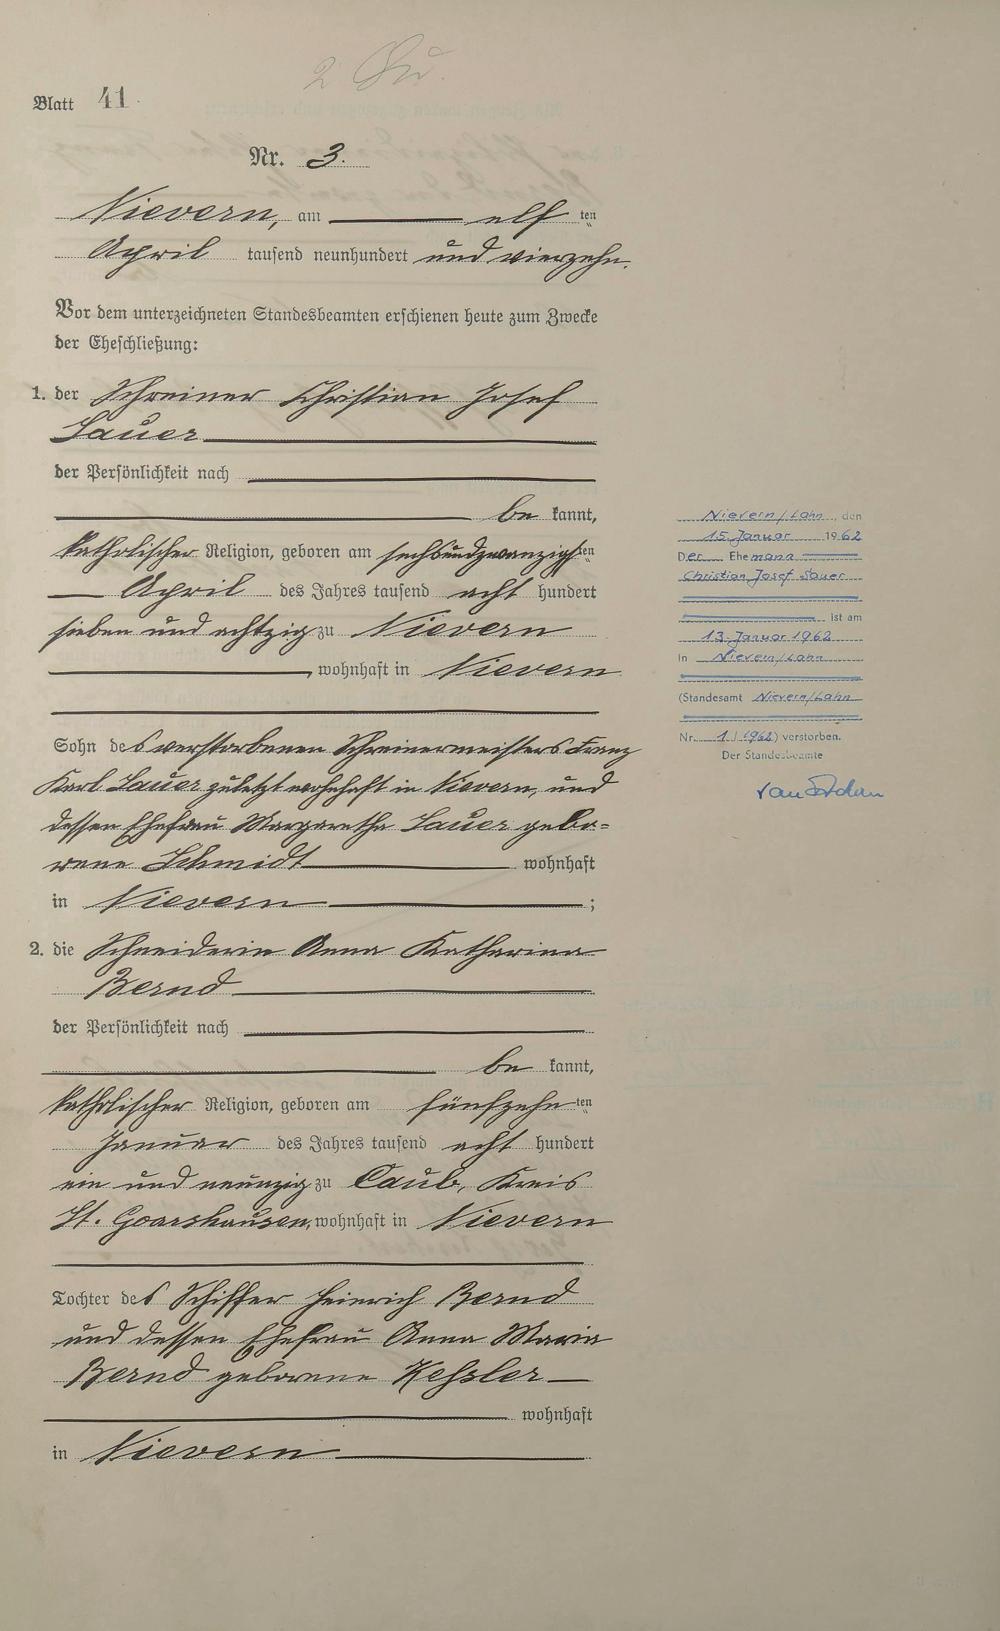 Blatt 41.
Nr. 3.
Nievern, am elf ten
April tausend neunhundert und vierzehn.
Vor dem unterzeichneten Standesbeamten erschienen heute zum Zwecke
der Eheschließung:
1. der Schreiner Christian Josef
Sauer
der Persönlichkeit nach
be kannt,
katholischer Religion, geboren am sechsundzwanzigsten
April des Jahres tausend acht hundert
sieben und achtzig zu Nievern
, wohnhaft in Nievern
Sohn des verstorbenen Schreinermeisters Franz
Karl Sauer zuletzt wohnhaft in Nievern, und
dessen Ehefrau Margaretha Sauer gebo-
rene Schmidt wohnhaft
in Nievern ;
2. die Schneiderin Anna Katharina
Bernd
der Persönlichkeit nach
be kannt,
katholischer Religion, geboren am fünfzehn ten
Januar des Jahres tausend acht hundert
ein und neunzig zu Caub, Kreis
St. Goarshausen, wohnhaft in Nievern
Tochter des Schiffer Heinrich Bernd
und dessen Ehefrau Anna Maria
Bernd geborene Keßler
wohnhaft
in Nievern
Nievern/Lahn, den
15. Januar 1962
Der Ehemann
Christian Josef Sauer
ist am
13. Januar 1962
in Nievern/Lahn
(Standesamt Nievern/Lahn
Nr. 1/1962) verstorben.
Der Standesbeamte